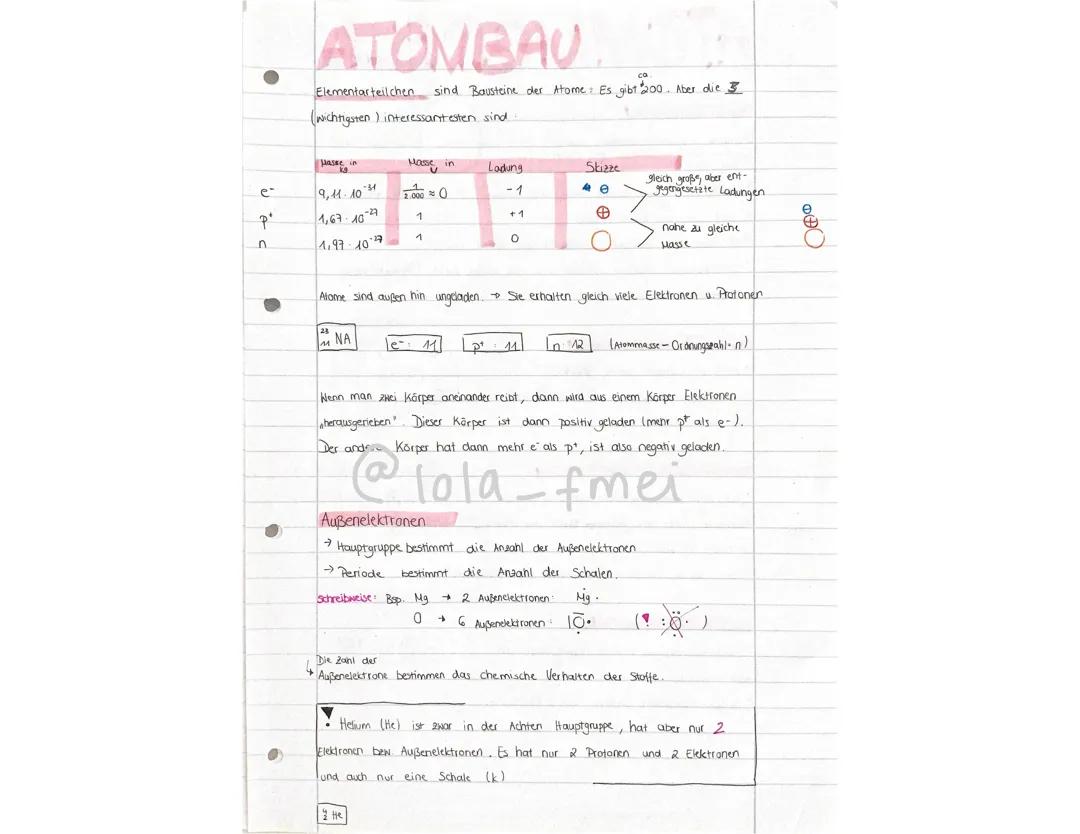 ATOMBAU
ca.
Elementarteilchen sind Bausteine der Atome: Es gibt 200. Aber die 3
(wichtigsten) interessantesten sind
Masse in kg Masse in u Ladung Skizze
e⁻ 9,11 · 10⁻³¹ 1/2.000 ≈ 0 -1 ⊖
p⁺ 1,67 · 10⁻²⁷ 1 +1 ⊕
n 1,97 · 10⁻²⁷ 1 0
gleich große, aber ent-
gegengesetzte Ladungen
nahe zu gleiche
Masse
Atome sind außen hin ungeladen. → Sie erhalten gleich viele Elektronen u. Protonen
23 11 NA e⁻: 11 p⁺: 11 n: 12 (Atommasse - Ordnungszahl = n)
Wenn man zwei Körper aneinander reibt, dann wird aus einem Körper Elektronen
„herausgerieben". Dieser Körper ist dann positiv geladen (mehr p⁺ als e-).
Der Körper hat dann mehr e⁻ als p⁺, ist also negativ geladen.
@lola_fmei
Außenelektronen
→ Hauptgruppe bestimmt die Anzahl der Außenelektronen
→ Periode bestimmt die Anzahl der Schalen.
Schreibweise: Bsp. Mg → 2 Außenelektronen: Mg
O → 6 Außenelektronen: |O (! : O )
Die Zahl der
↳ Außenelektrone bestimmen das chemische Verhalten der Stoffe.
! Helium (He) ist zwar in der Achten Hauptgruppe, hat aber nur 2
Elektronen bzw. Außenelektronen. Es hat nur 2 Protonen und 2 Elektronen
und auch nur eine Schale (k)
4 2 He